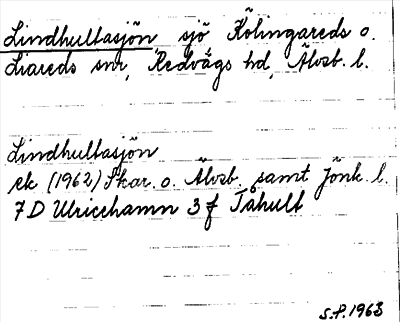 Lindhultasjön sjö Kölingareds o.
Liareds snr, Redvägs hd, Älvsb. l.
Lindhultasjön
ek (1962) Skar. o. Älvsb. samt Jönk. l.
7 D Ulricehamn 3 f Tåhult
S.P. 1963